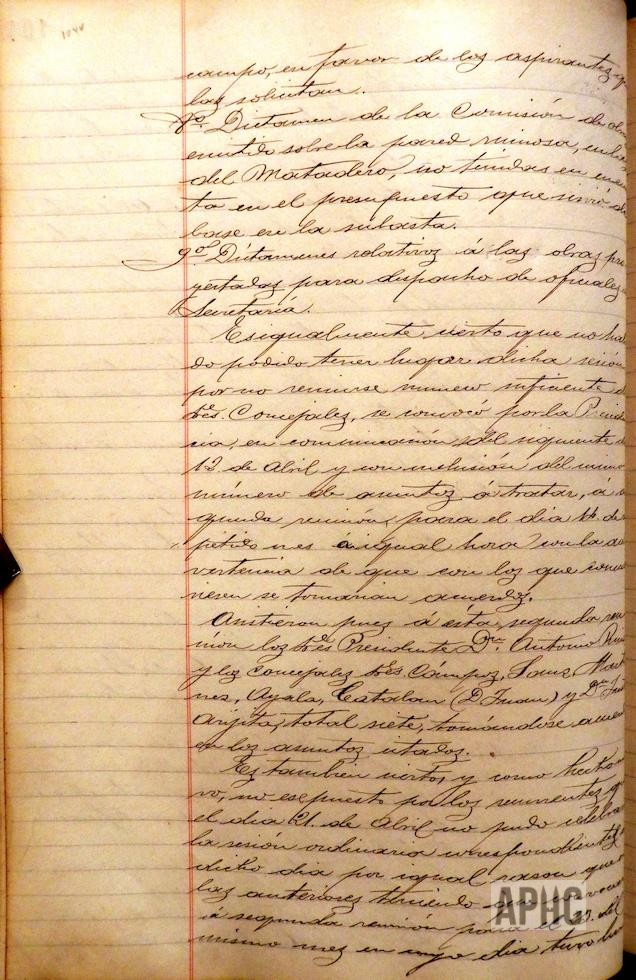 campo, en favor de los aspirantes q
las solicitan.
8º. Dictamen de la Comisión de obr
emitido sobre la pared ruinosa, en las
del Matadero, no tenidas en cuen
ta en el presupuesto que sirvió de
base en la subasta.
9º. Dictamenes relativos á las obras pro
yectadas para despacho de oficiales
Secretaría.
Es igualmente cierto que no ha
do podido tener lugar dicha sesión
por no reunirse número suficiente d
Sres. Concejales, se convocó por la Presiden
cia, en comunicación del siguiente
12 de Abril y con inclusión del mismo
número de asuntos á tratar, á
gunda reunión, para el dia 14 de
petido mes á igual hora con la ad
vertencia de que con los que concu
rriesen se tomarian acuerdos.
Asistieron pues á esta segunda reu
nión los Sres Presidente Dn. Antonio
y los Concejales Sres Cámpos, Sanz, Marti
nez, Ayala, Catalan (D. Juan) y Dn
Arjita, total siete, tomándose acuer
en los asuntos citados.
Es tambien cierto, y como
vo, no expuesto por los recurrentes, q
el dia 21 de Abril no pudo celebra
la sesión ordinaria correspondiente
dicho dia por igual rason que
las anteriores teniendo que
á segunda reunión para el 23 del
mismo mes en cuyo dia tuvo
APHG